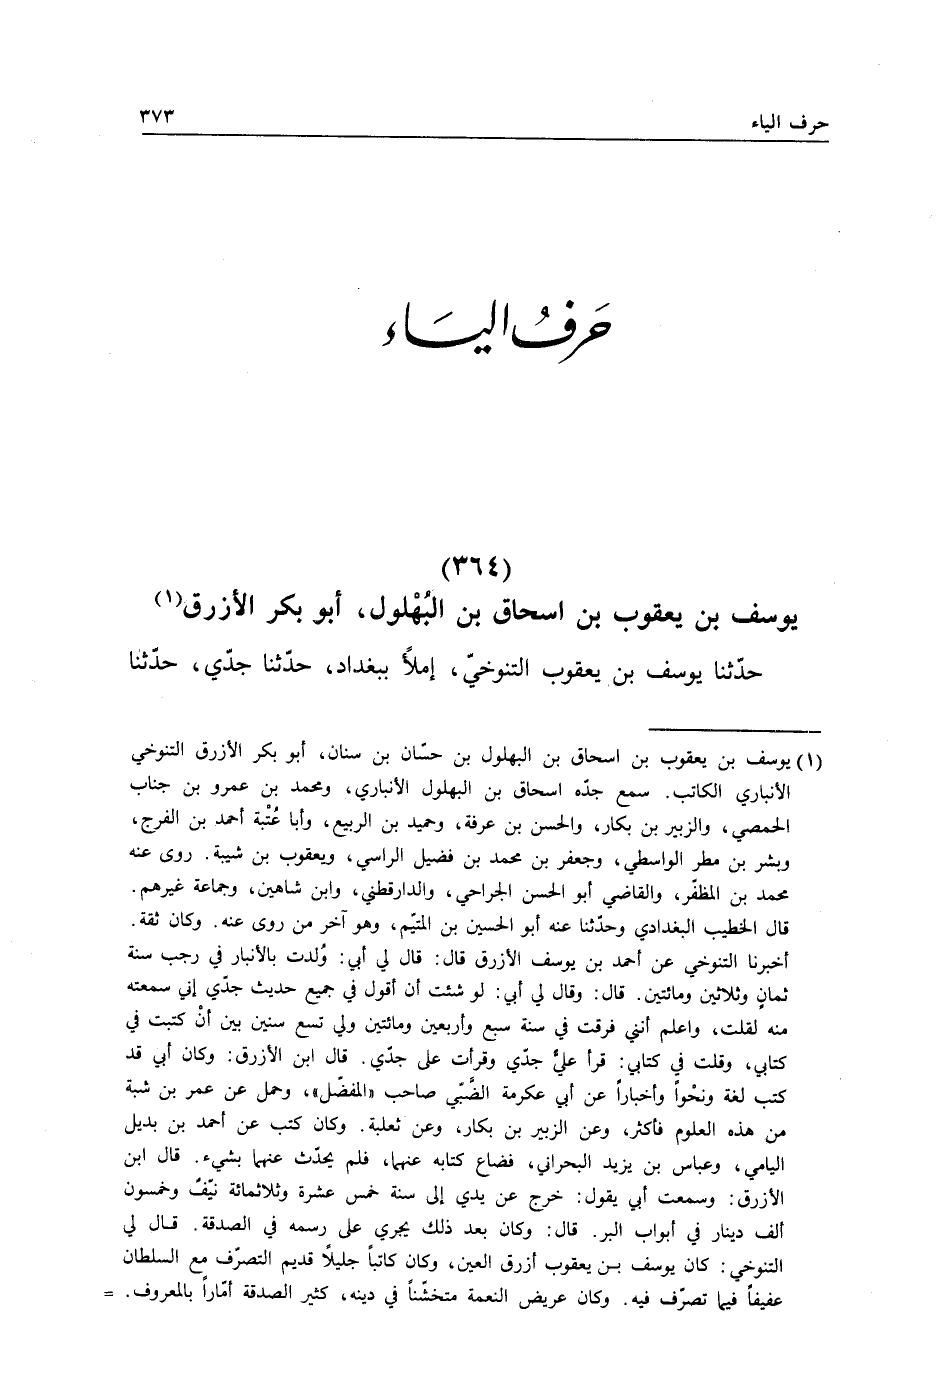 حرف الياء ٣٧٣
حَرفُ اليَاء
(٣٦٤)
يوسف بن يعقوب بن اسحاق بن البُهْلول، أبو بكر الأزرق(١)
حدّثنا يوسف بن يعقوب التنوخيّ، إملاً ببغداد، حدّثنا جدّي، حدّثنا
(١) يوسف بن يعقوب بن اسحاق بن البهلول بن حسّان بن سنان، أبو بكر الأزرق التنوخي
الأنباري الكاتب. سمع جدّه اسحاق بن البهلول الأنباري، ومحمد بن عمرو بن جناب
الحمصي، والزبير بن بكار، والحسن بن عرفة، وحميد بن الربيع، وأبا عُتْبة أحمد بن الفرج،
وبشر بن مطر الواسطي، وجعفر بن محمد بن فضيل الراسي، ويعقوب بن شيبة. روى عنه
محمد بن المظفّر، والقاضي أبو الحسن الجراحي، والدارقطني، وابن شاهين، وجماعة غيرهم.
قال الخطيب البغدادي وحدّثنا عنه أبو الحسين بن المتيّم، وهو آخر من روى عنه. وكان ثقة.
أخبرنا التنوخي عن أحمد بن يوسف الأزرق قال: قال لي أبي: وُلدت بالأنبار في رجب سنة
ثمانٍ وثلاثين ومائتين. قال: وقال لي أبي: لو شئت أن أقول في جميع حديث جدّي إني سمعته
منه لقلت، واعلم أنني فرقت في سنة سبع وأربعين ومائتين ولي تسع سنين بين أنْ كتبت في
كتابي، وقلت في كتابي: قرأ عليُّ جدّي وقرأت على جدّي. قال ابن الأزرق: وكان أبي قد
كتب لغة ونحْواً وأخباراً عن أبي عكرمة الضَّبّي صاحب «المفضّل»، وحمل عن عمر بن شبة
من هذه العلوم فأكثر، وعن الزبير بن بكار، وعن ثعلبة. وكان كتب عن أحمد بن بديل
اليامي، وعباس بن يزيد البحراني، فضاع كتابه عنهما، فلم يحدّث عنهما بشيء. قال ابن
الأزرق: وسمعت أبي يقول: خرج عن يدي إلى سنة خمس عشرة وثلاثمائة نيّفُ وخمسون
ألف دينار في أبواب البر. قال: وكان بعد ذلك يجري على رسمه في الصدقة. قال لي
التنوخي: كان يوسف بن يعقوب أزرق العين، وكان كاتباً جليلًا قديم التصرّف مع السلطان
عفيفاً فيما تصرّف فيه. وكان عريض النعمة متخشّناً في دينه، كثير الصدقة أمّاراً بالمعروف. =